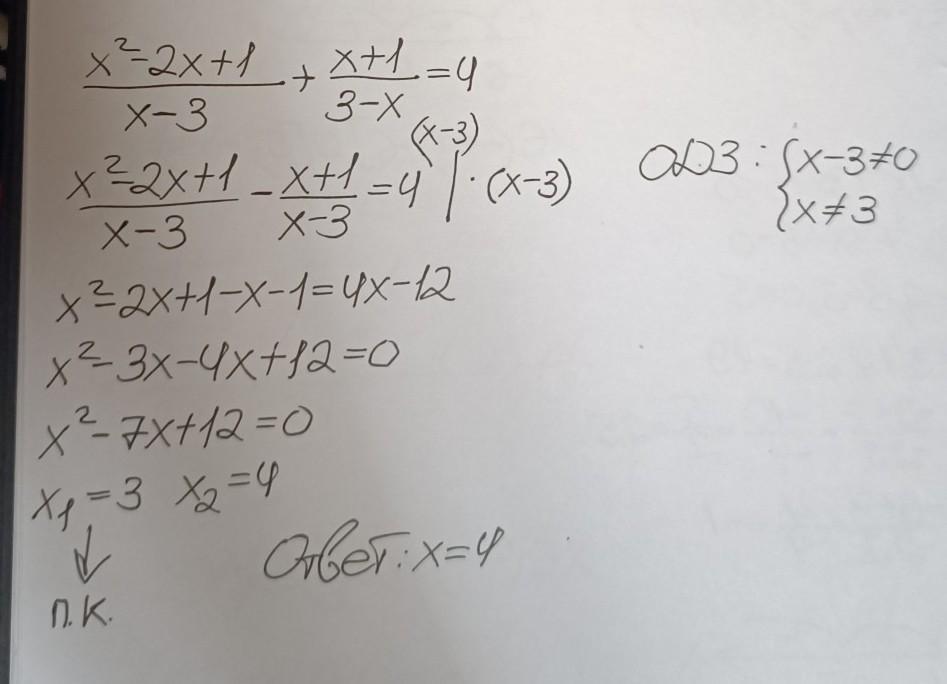 x²-2x+1/x-3 + x+1/3-x = 4
(x-3)
x²-2x+1/x-3 - x+1/x-3 = 4 | · (x-3)
ОДЗ: { x-3≠0
x≠3
x²-2x+1-x-1=4x-12
x²-3x-4x+12=0
x²-7x+12=0
x₁=3 x₂=4
↓
Ответ: x=4
п.к.